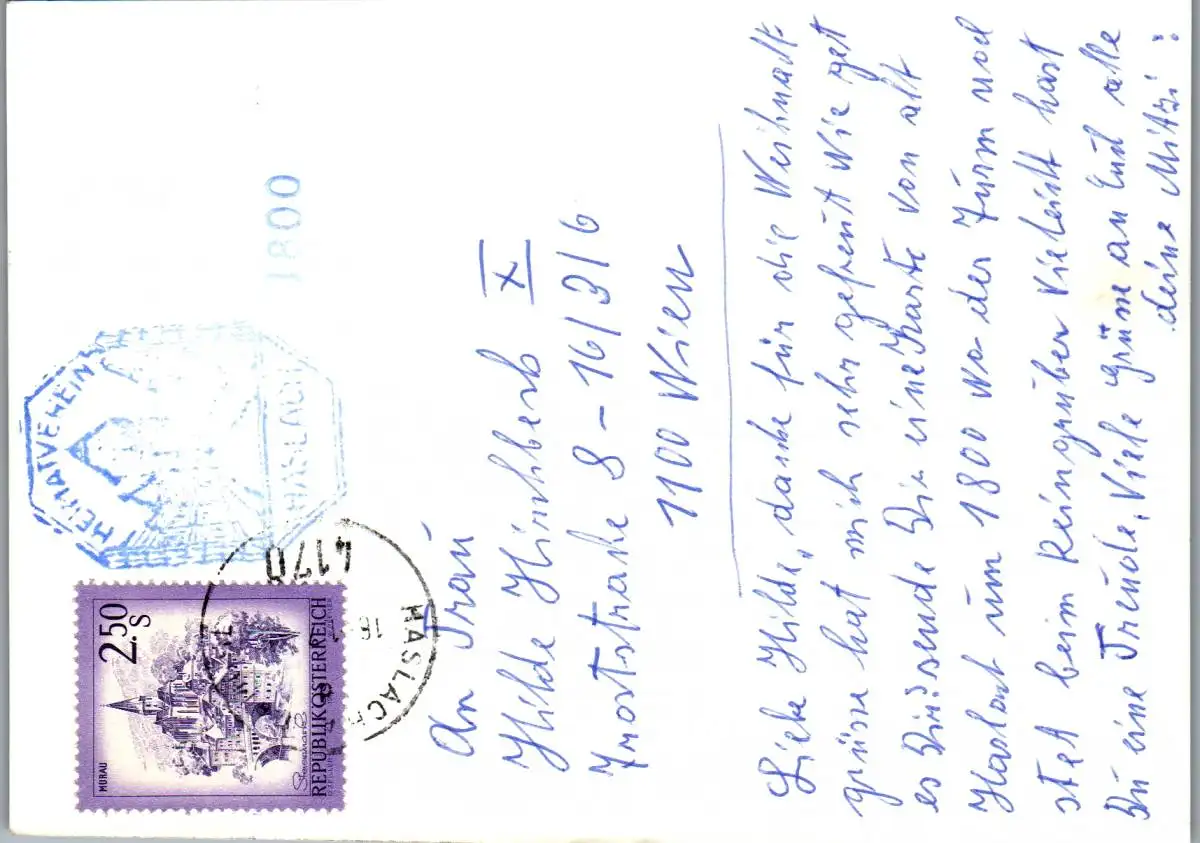 HEIMATVEREIN
HASLACH
1800
2.50
S
MURAU
REPUBLIK ÖSTERREICH
4170
HASLACH
An Frau
Hilde Hirschberb
X
Trostrahe 8-16/3/6
1100 Wien
Liebe Hilde, danke für die Weihnacht
grüsse hat mich sehr gefreut Wie get
es Dir, sende Dir eine Karte von alt
Haslach um 1800 wo der Turm noch
stet beim Reingruber vieleicht hast
Du eine Freude, Viele grüsse an Euch alle
deine Mitzi